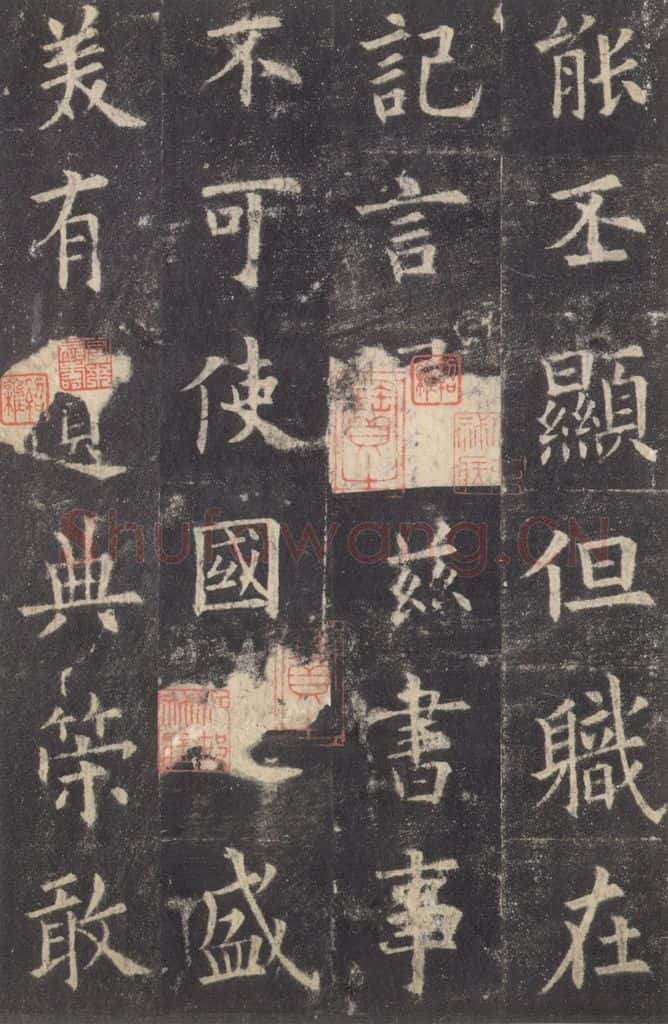 能丕顯但職在
記言兹書事
不可使國盛
美有典策敢
Shufawang.CN